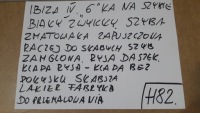 IBIZA IV "6"KA NA SZYBIE
BIAŁY ZWYKŁY, SZYBA
ZMATOWAŁA ZAPUSZCZONA
RACZEJ DO SŁABYCH SZYB
ZAMGLONA, RYSA DASZEK.
KLAPA RYSA - KLAPA BEZ
POŁYSKU SKABSZA
LAKIER FABRYKA
DO PRZEMALOWANIA
H82.